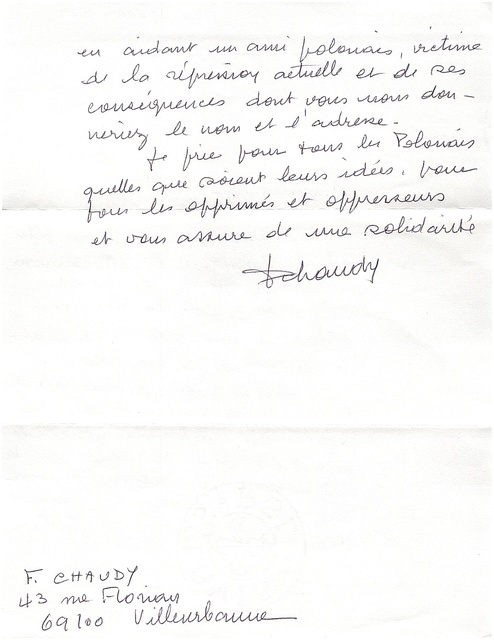 en aidant un ami polonais, victime
de la répression actuelle et de ses
conséquences dont vous nous don-
neriez le nom et l'adresse.
Je prie pour tous les Polonais
quelles que soient leurs idées, pour
tous les opprimés et oppresseurs
et vous assure de ma solidarité
F. Chaudy
F. CHAUDY
43 rue Florian
69100 Villeurbanne